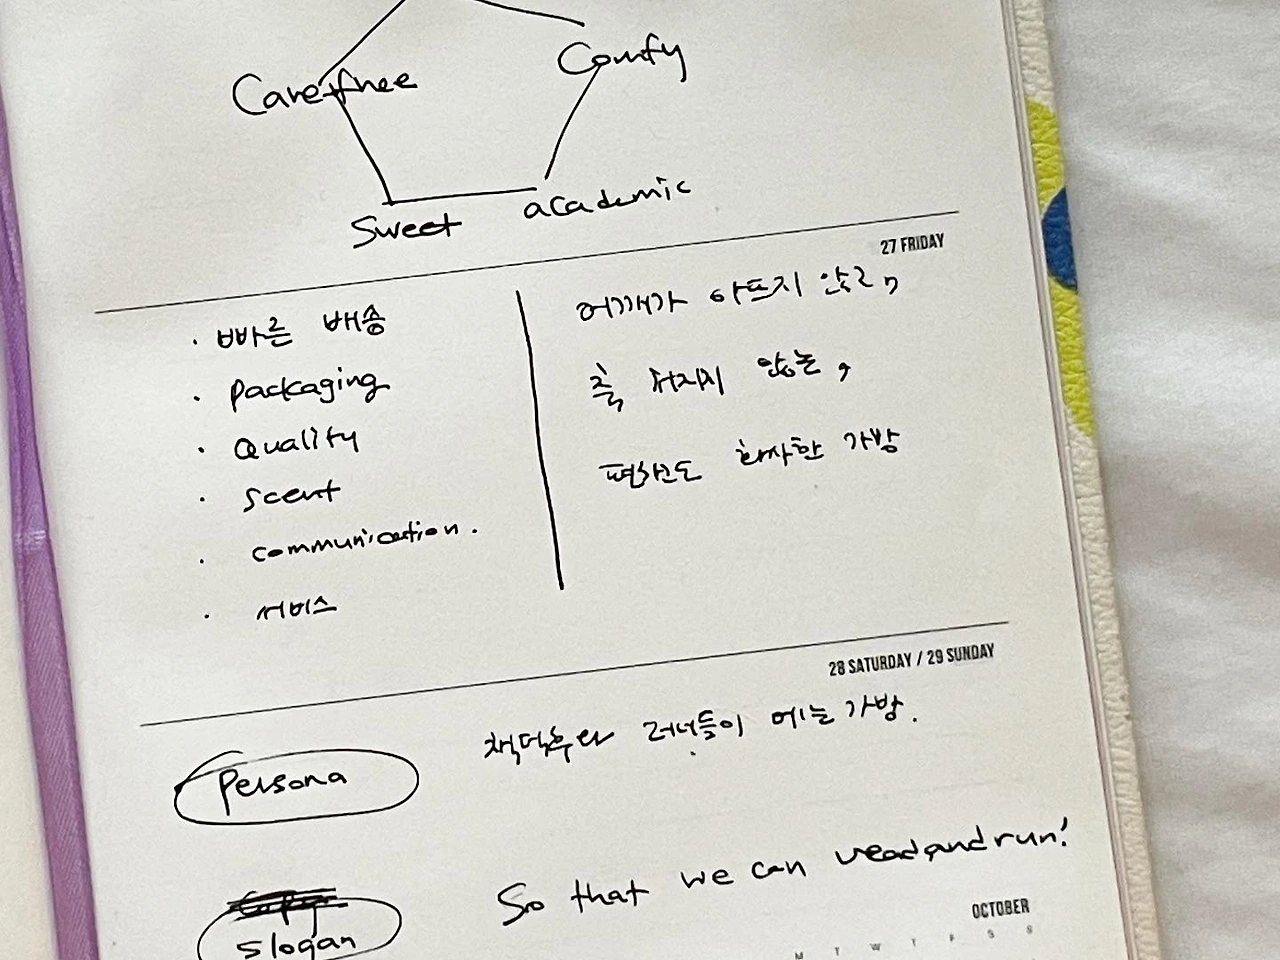 Comfy
Carefree
academic
Sweet
27 FRIDAY
· 빠른 배송
· packaging
· Quality
· scent
· communication.
· 서비스
어깨가 아프지 않고,
축 처지지 않는,
편해도 화사한 가방
28 SATURDAY / 29 SUNDAY
persona
책덕후와 러너들이 메는 가방.
slogan
So that we can read and run!
OCTOBER
M T W T F S S